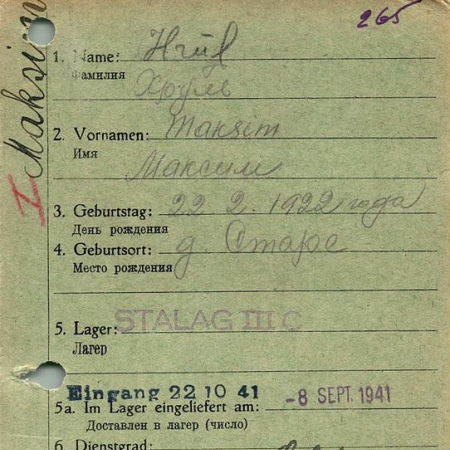 265
Maksim
I
1. Name:
Фамилия
Хруль
2. Vornamen: Maksim
Имя
Максим
3. Geburtstag: 22 2. 1922 года
День рождения
4. Geburtsort: д. Старе
Место рождения
5. Lager: STALAG III C
Лагер
Eingang 22 10 41
5a. Im Lager eingeliefert am: -8 SEPT. 1941
Доставлен в лагер (число)
6. Dienstgrad: